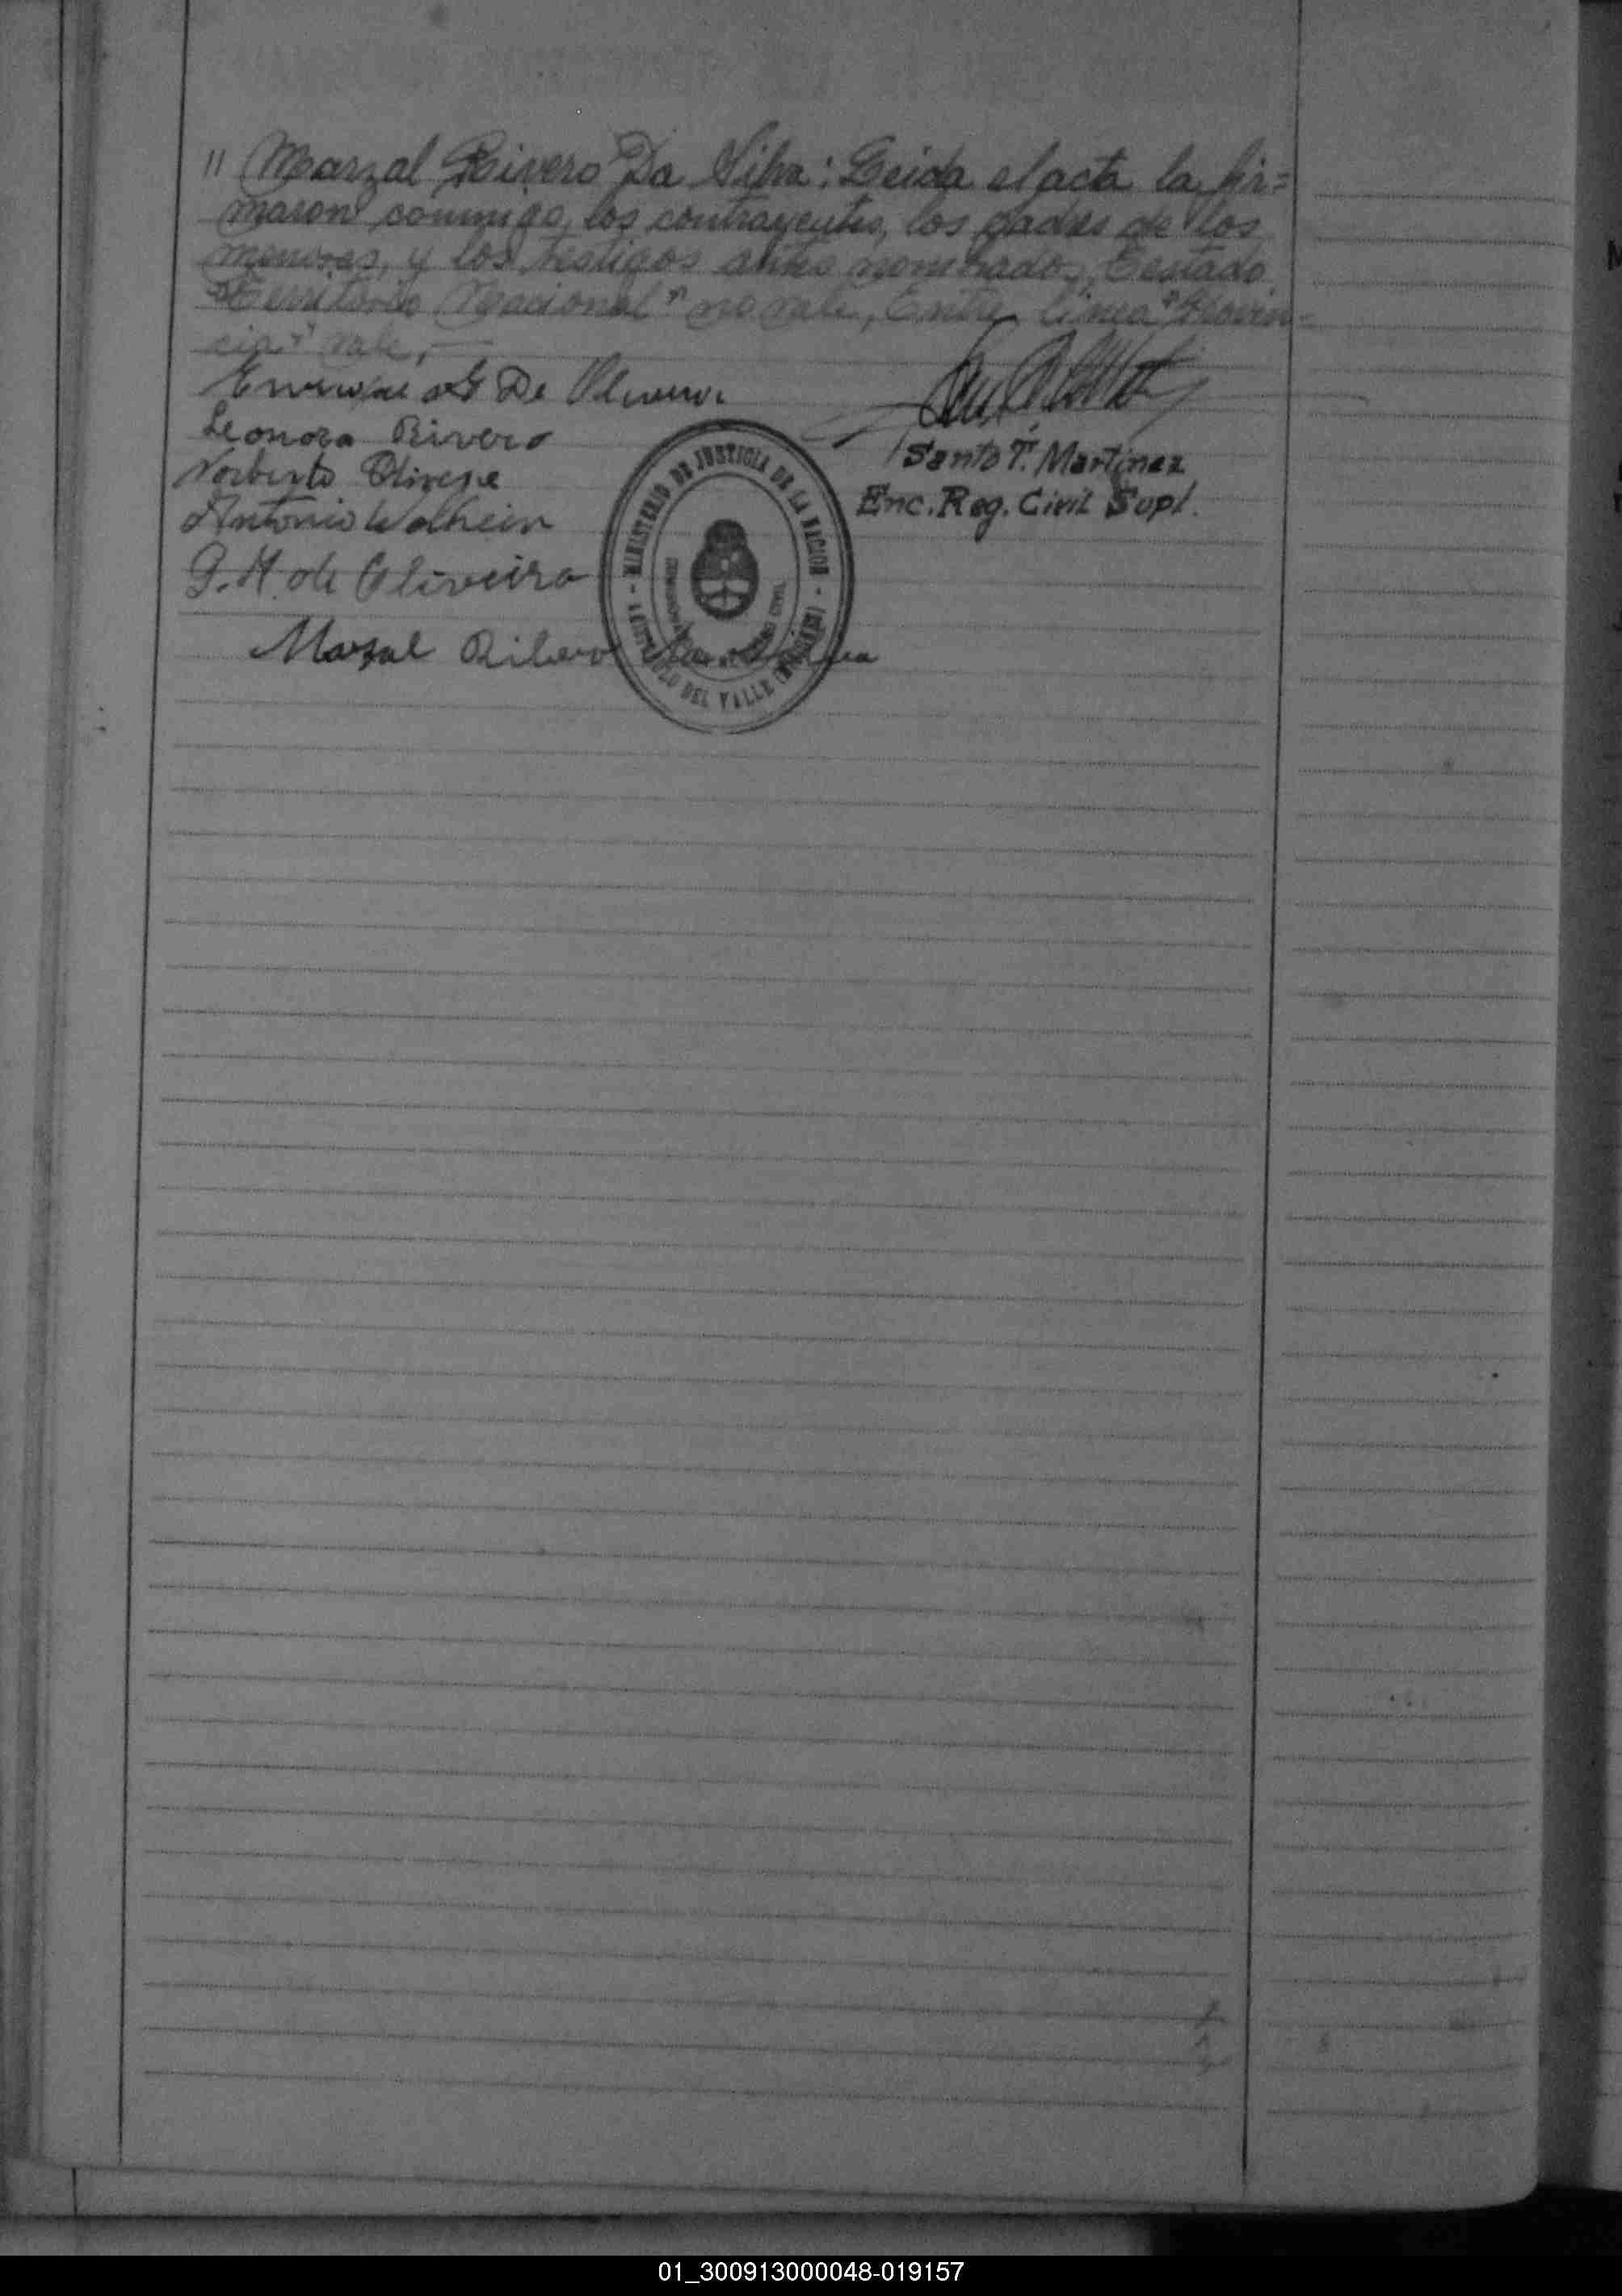 " Marzal Rivero Da Silva: Leida el acta la fir=
maron conmigo, los contrayentes, los padres de los
menores, y los testigos antes nombrados, Testado
"Territorio Nacional" no vale, Entre linea "Provin-
cia" vale,
De Olivera
Leonora Rivero
Norberto
Antonio
G. H. de Oliveira
Marzal Ribero
Santo T. Martinez
Enc. Reg. Civil Supl.
MINISTERIO DE JUSTICIA DE LA NACION
DEL VALLE
01_300913000048-019157